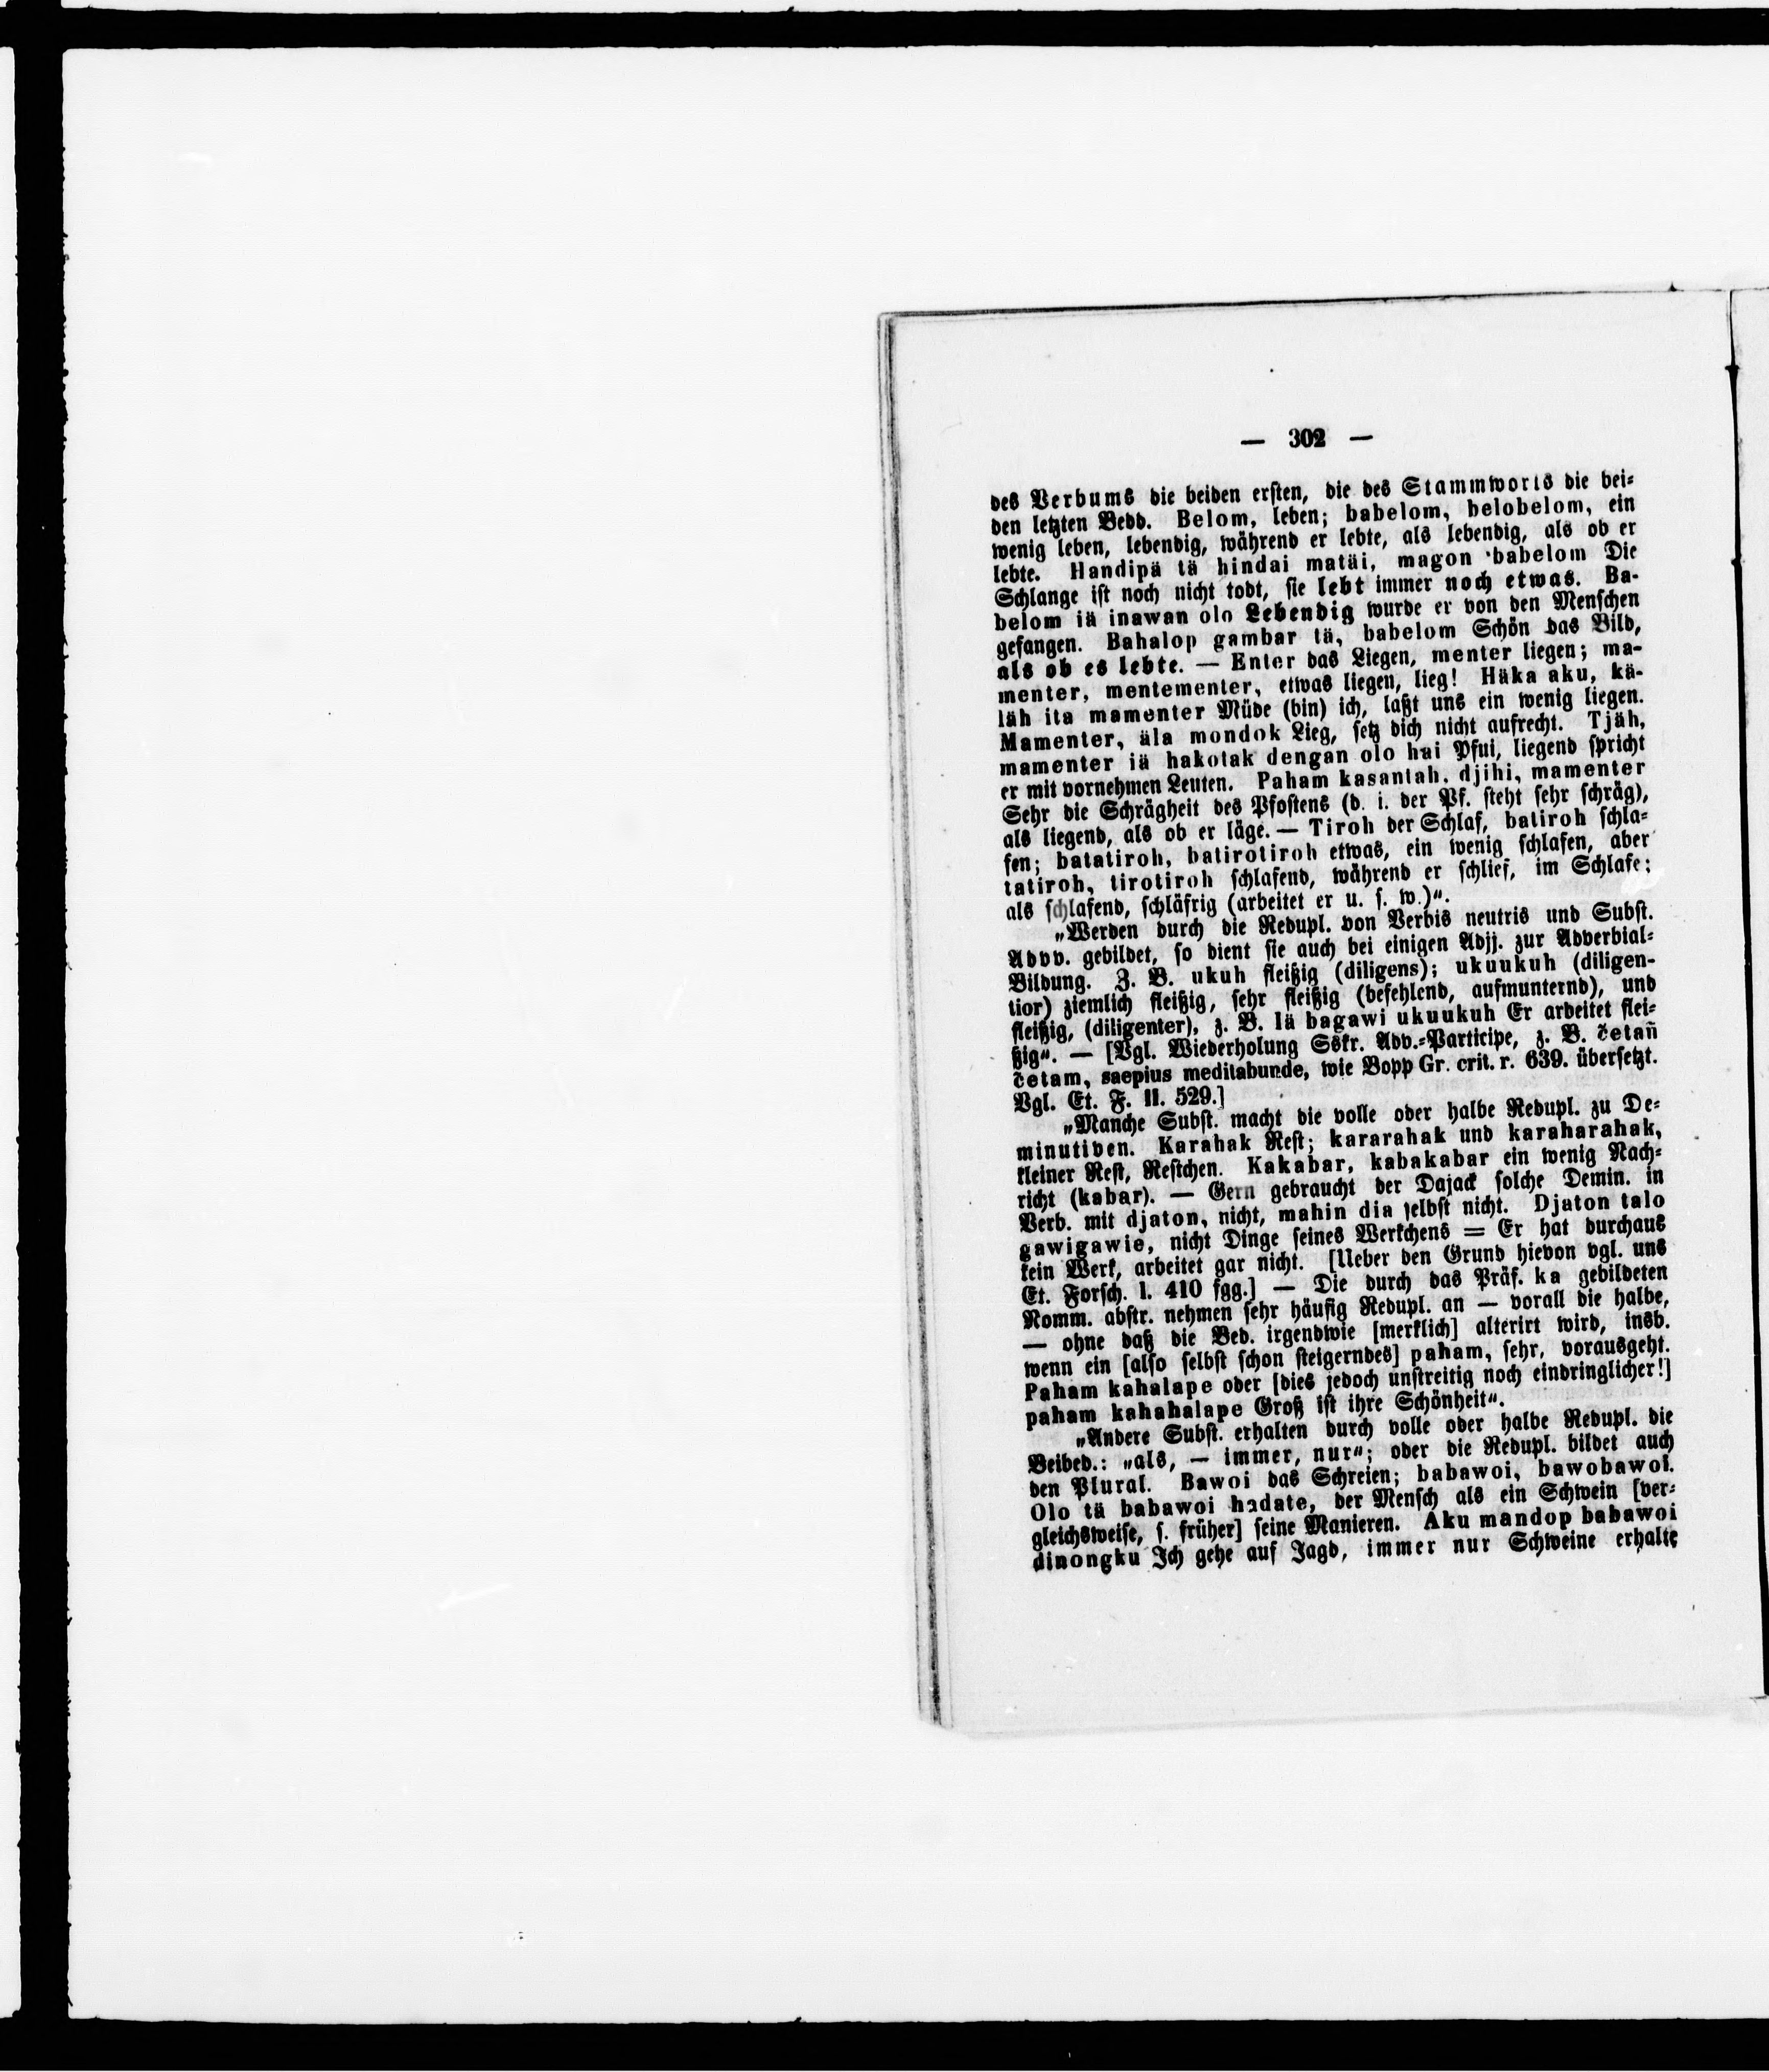 — 302 —
des Verbums die beiden ersten, die des Stammworts die bei-
den letzten Bedd. Belom, leben; babelom, belobelom, ein
wenig leben, lebendig, während er lebte, als lebendig, als ob er
lebte. Handipä tä hindai matäi, magon babelom Die
Schlange ist noch nicht todt, sie lebt immer noch etwas. Ba-
belom iä inawan olo Lebendig wurde er von den Menschen
gefangen. Bahalop gambar tä, babelom Schön das Bild,
als ob es lebte. — Enter das Liegen, menter liegen; ma-
menter, mentementer, etwas liegen, lieg! Häka aku, kä-
läh ita mamenter Müde (bin) ich, laßt uns ein wenig liegen.
Mamenter, äla mondok Lieg, setz dich nicht aufrecht. Tjäh,
mamenter iä hakotak dengan olo hai Pfui, liegend spricht
er mit vornehmen Leuten. Paham kasantah, djihi, mamenter
Sehr die Schrägheit des Pfostens (d. i. der Pf. steht sehr schräg),
als liegend, als ob er läge. — Tiroh der Schlaf, batiroh schla-
fen; batatiroh, batirotiroh etwas, ein wenig schlafen, aber
tatiroh, tirotiroh schlafend, während er schlief, im Schlafe;
als schlafend, schläfrig (arbeitet er u. s. w.)“.
„Werden durch die Redupl. von Verbis neutris und Subst.
Advv. gebildet, so dient sie auch bei einigen Adjj. zur Adverbial-
Bildung. Z. B. ukuh fleißig (diligens); ukuukuh (diligen-
tior) ziemlich fleißig, sehr fleißig (befehlend, aufmunternd), und
fleißig, (diligenter), z. B. Iä bagawi ukuukuh Er arbeitet flei-
ßig“. — [Vgl. Wiederholung Sskr. Adv.-Participe, z. B. c̆etañ
c̆etam, saepius meditabunde, wie Bopp Gr. crit. r. 639. übersetzt.
Vgl. Et. F. II. 529.]
„Manche Subst. macht die volle oder halbe Redupl. zu De-
minutiven. Karahak Rest; kararahak und karaharahak,
kleiner Rest, Restchen. Kakabar, kabakabar ein wenig Nach-
richt (kabar). — Gern gebraucht der Dajack solche Demin. in
Verb. mit djaton, nicht, mahin dia selbst nicht. Djaton talo
gawigawie, nicht Dinge seines Werkchens = Er hat durchaus
kein Werk, arbeitet gar nicht. [Ueber den Grund hievon vgl. uns
Et. Forsch. I. 410 fgg.] — Die durch das Präf. ka gebildeten
Nomm. abstr. nehmen sehr häufig Redupl. an — vorall die halbe,
— ohne daß die Bed. irgendwie [merklich] alterirt wird, insb.
wenn ein [also selbst schon steigerndes] paham, sehr, vorausgeht.
Paham kahalape oder [dies jedoch unstreitig noch eindringlicher!]
paham kahahalape Groß ist ihre Schönheit“.
„Andere Subst. erhalten durch volle oder halbe Redupl. die
Beibed.: „als, — immer, nur“; oder die Redupl. bildet auch
den Plural. Bawoi das Schreien; babawoi, bawobawoi.
Olo tä babawoi hadate, der Mensch als ein Schwein [ver-
gleichsweise, s. früher] seine Manieren. Aku mandop babawoi
dinongku Ich gehe auf Jagd, immer nur Schweine erhalte